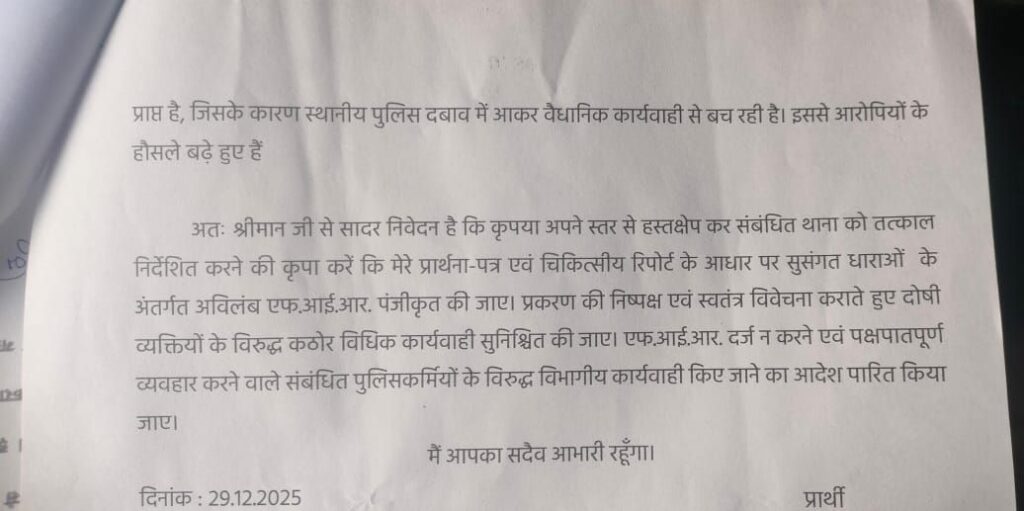 प्राप्त है, जिसके कारण स्थानीय पुलिस दबाव में आकर वैधानिक कार्यवाही से बच रही है। इससे आरोपियों के
हौसले बढ़े हुए हैं
अतः श्रीमान जी से सादर निवेदन है कि कृपया अपने स्तर से हस्तक्षेप कर संबंधित थाना को तत्काल
निर्देशित करने की कृपा करें कि मेरे प्रार्थना-पत्र एवं चिकित्सीय रिपोर्ट के आधार पर सुसंगत धाराओं के
अंतर्गत अविलंब एफ.आई.आर. पंजीकृत की जाए। प्रकरण की निष्पक्ष एवं स्वतंत्र विवेचना कराते हुए दोषी
व्यक्तियों के विरुद्ध कठोर विधिक कार्यवाही सुनिश्चित की जाए। एफ.आई.आर. दर्ज न करने एवं पक्षपातपूर्ण
व्यवहार करने वाले संबंधित पुलिसकर्मियों के विरुद्ध विभागीय कार्यवाही किए जाने का आदेश पारित किया
जाए।
मैं आपका सदैव आभारी रहूँगा।
दिनांक : 29.12.2025 प्रार्थी